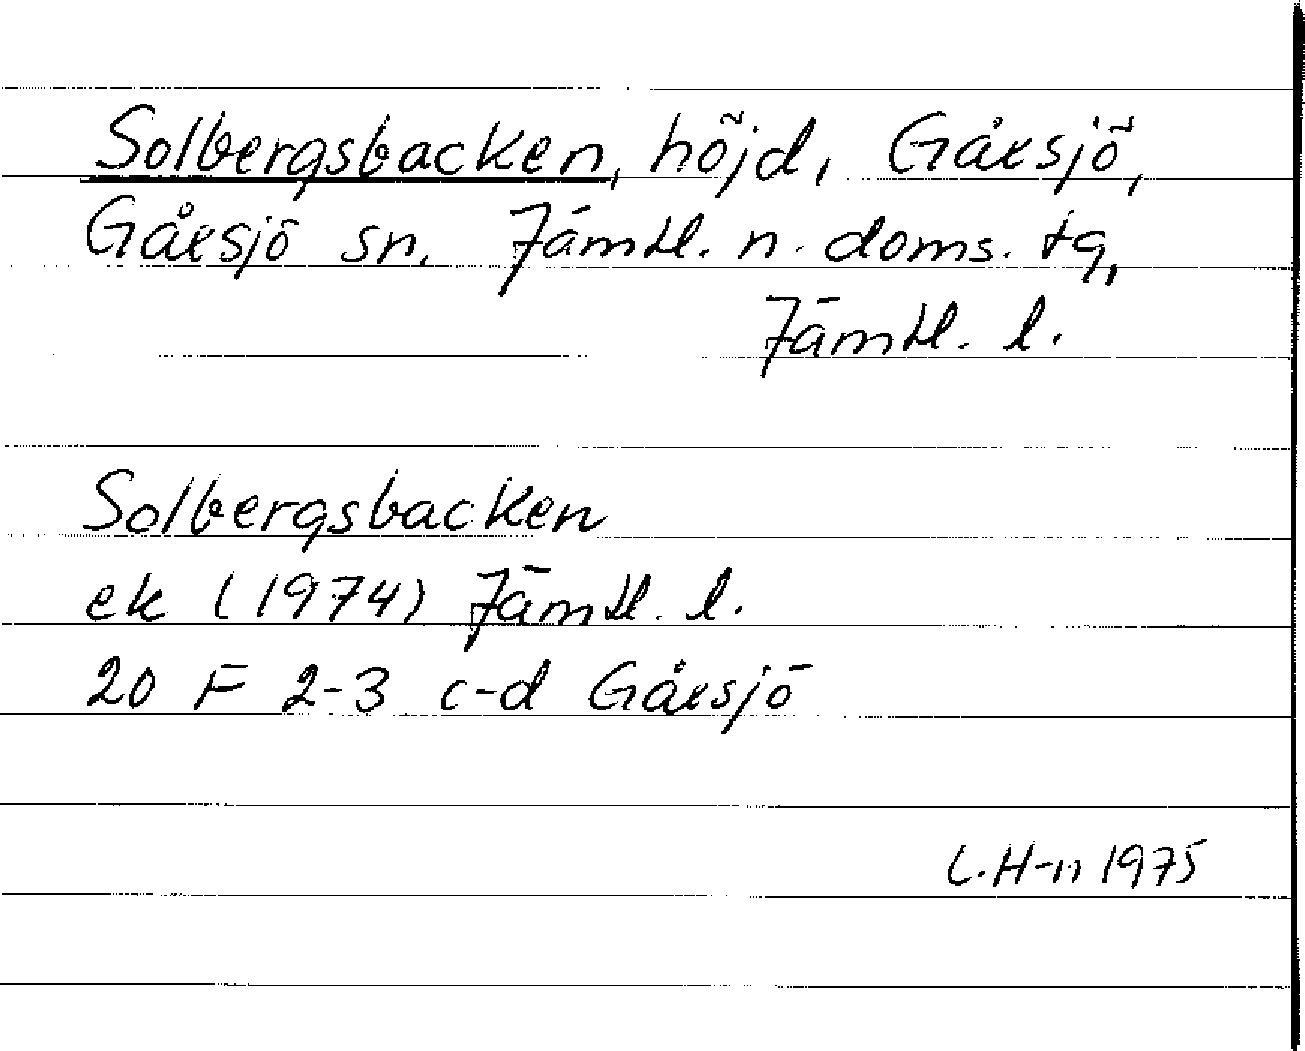 Solbergsbacken, höjd, Gåxsjö,
Gåxsjö sn. Jämtl. n. doms. tg,
Jämtl. l.
Solbergsbacken
ek (1974) Jämtl. l.
20 F 2-3 c-d Gåxsjö
L.H-n 1975